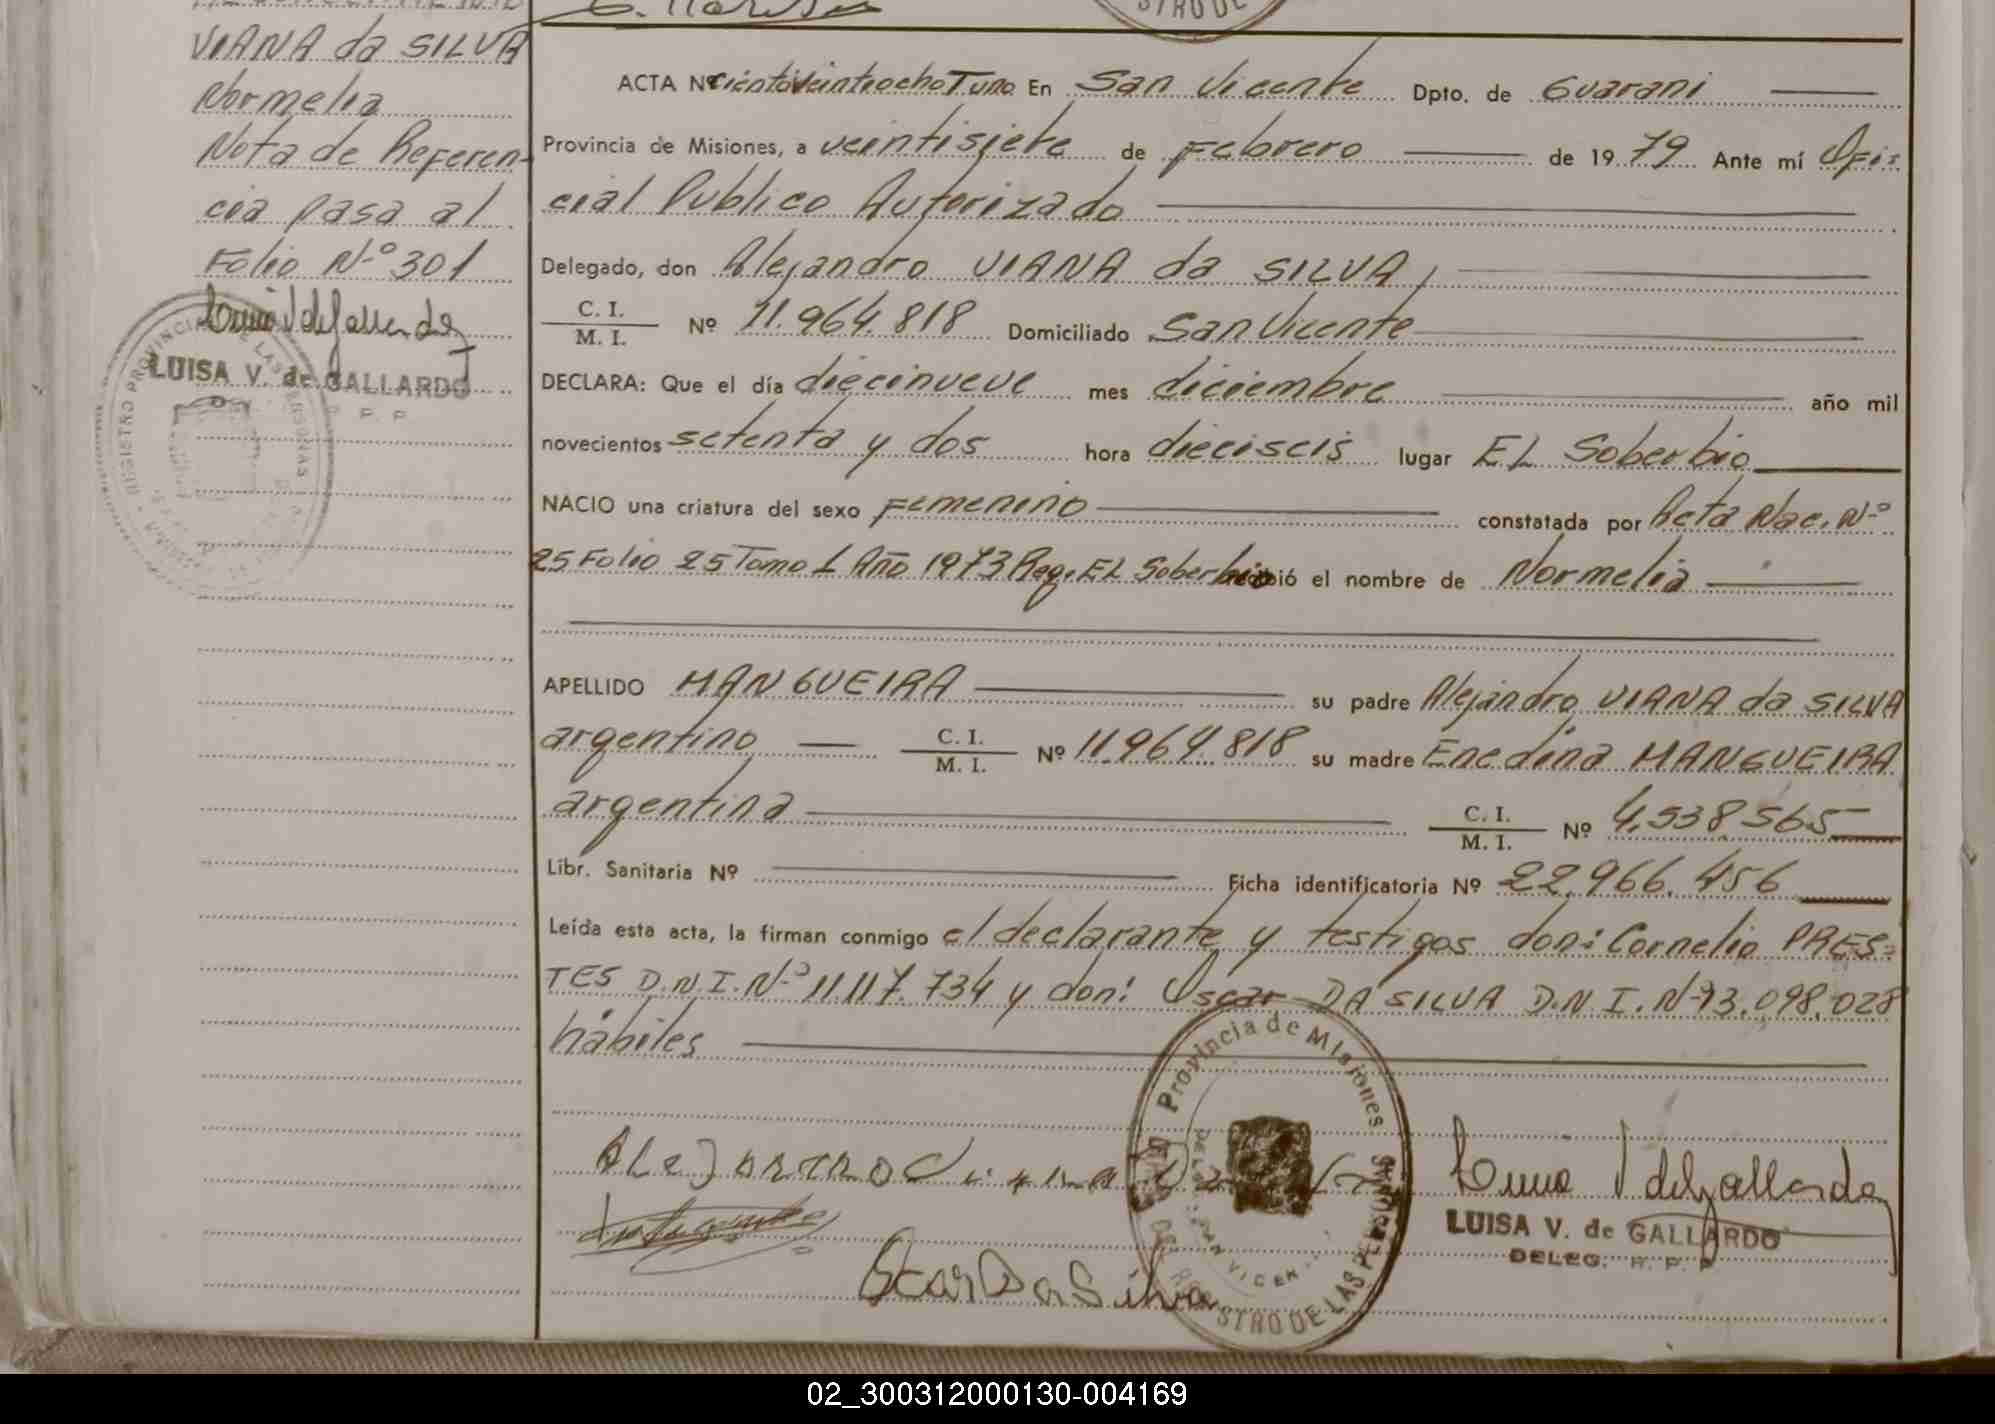 VIANA da SILVA
Normelia
Nota de Referen-
cia pasa al
Folio Nº 301
LUISA V. de GALLARDO
ACTA Nº cientoveintiochoTuno En San Vicente Dpto. de Guarani
Provincia de Misiones, a veintisiete de Febrero de 19 79 Ante mí Ofi-
cial Publico Autorizado
Delegado, don Alejandro VIANA da SILVA,
C. I.
M. I. Nº 11.964.818 Domiciliado San Vicente
DECLARA: Que el día diecinueve mes diciembre año mil
novecientos setenta y dos hora dieciseis lugar EL Soberbio
NACIO una criatura del sexo Femenino constatada por Acta Nac. Nº
25 Folio 25 Tomo 1 Año 1973 Reg. EL Soberbio recibió el nombre de Normelia
APELLIDO MANGUEIRA su padre Alejandro VIANA da SILVA
argentino C. I. M. I. Nº 11.964.818 su madre Enedina MANGUEIRA
argentina C. I. M. I. Nº 4.538.565
Libr. Sanitaria Nº Ficha identificatoria Nº 22.966.456
Leída esta acta, la firman conmigo el declarante y testigos don: Cornelio PRES-
TES D.N.I. Nº 11.117.734 y don: Oscar DA SILVA D.N.I. Nº 13.098.028
hábiles
Provincia de Misiones
REGISTRO DE LAS PERSONAS
LUISA V. de GALLARDO
DELEG. R. P. P.
Oscar Da Silva
02_300312000130-004169